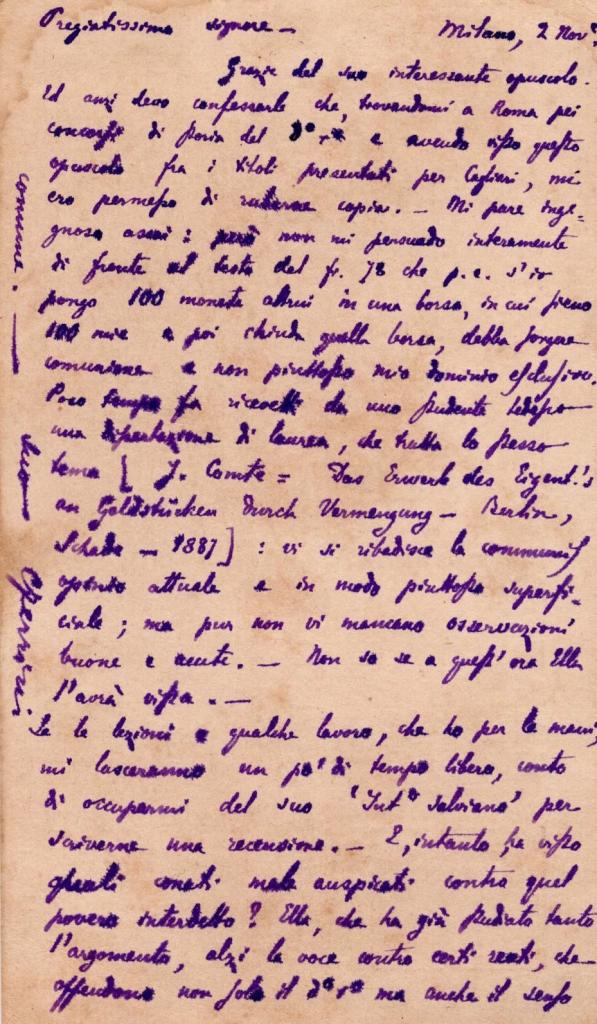 Pregiatissimo signore — Milano, 2 Nov.
Grazie del suo interessante opuscolo.
Ed anzi devo confessarle che, trovandomi a Roma pei
concorsi di storia del D°. r° e avendo visto questo
opuscolo fra i titoli presentati per Cagliari, mi
ero permesso di trarne copia. — Mi pare inge-
gnoso assai: però non mi persuado interamente
di fronte al testo del fr. 78 che p. e. s'io
pongo 100 monete altrui in una borsa, in cui sieno
100 mie e poi chiuda quella borsa, debba sorgere
comunione e non piuttosto mio dominio esclusivo.
Poco tempo fa ricevetti da uno studente tedesco
una dissertazione di laurea, che tratta lo stesso
tema [J. Comte = Das Erwerb des Eigent.'s
an Geldstücken durch Vermengung — Berlin,
Schade — 1887]: vi si ribadisce la communis
opinio attuale e in modo piuttosto superfi-
ciale; ma pur non vi mancano osservazioni
buone e acute. — Non so se a quest'ora Ella
l'avrà vista. —
Se le lezioni e qualche lavoro, che ho per le mani,
mi lasceranno un po' di tempo libero, conto
di occuparmi del suo 'Int° salviano' per
scriverne una recensione. — E, intanto, ha visto
quali conati male auspicati contro quel
povero interdetto? Ella, che ha già studiato tanto
l'argomento, alzi la voce contro certi reati, che
offendono non solo il d° r° ma anche il senso
comune. —
Suo CFerrini